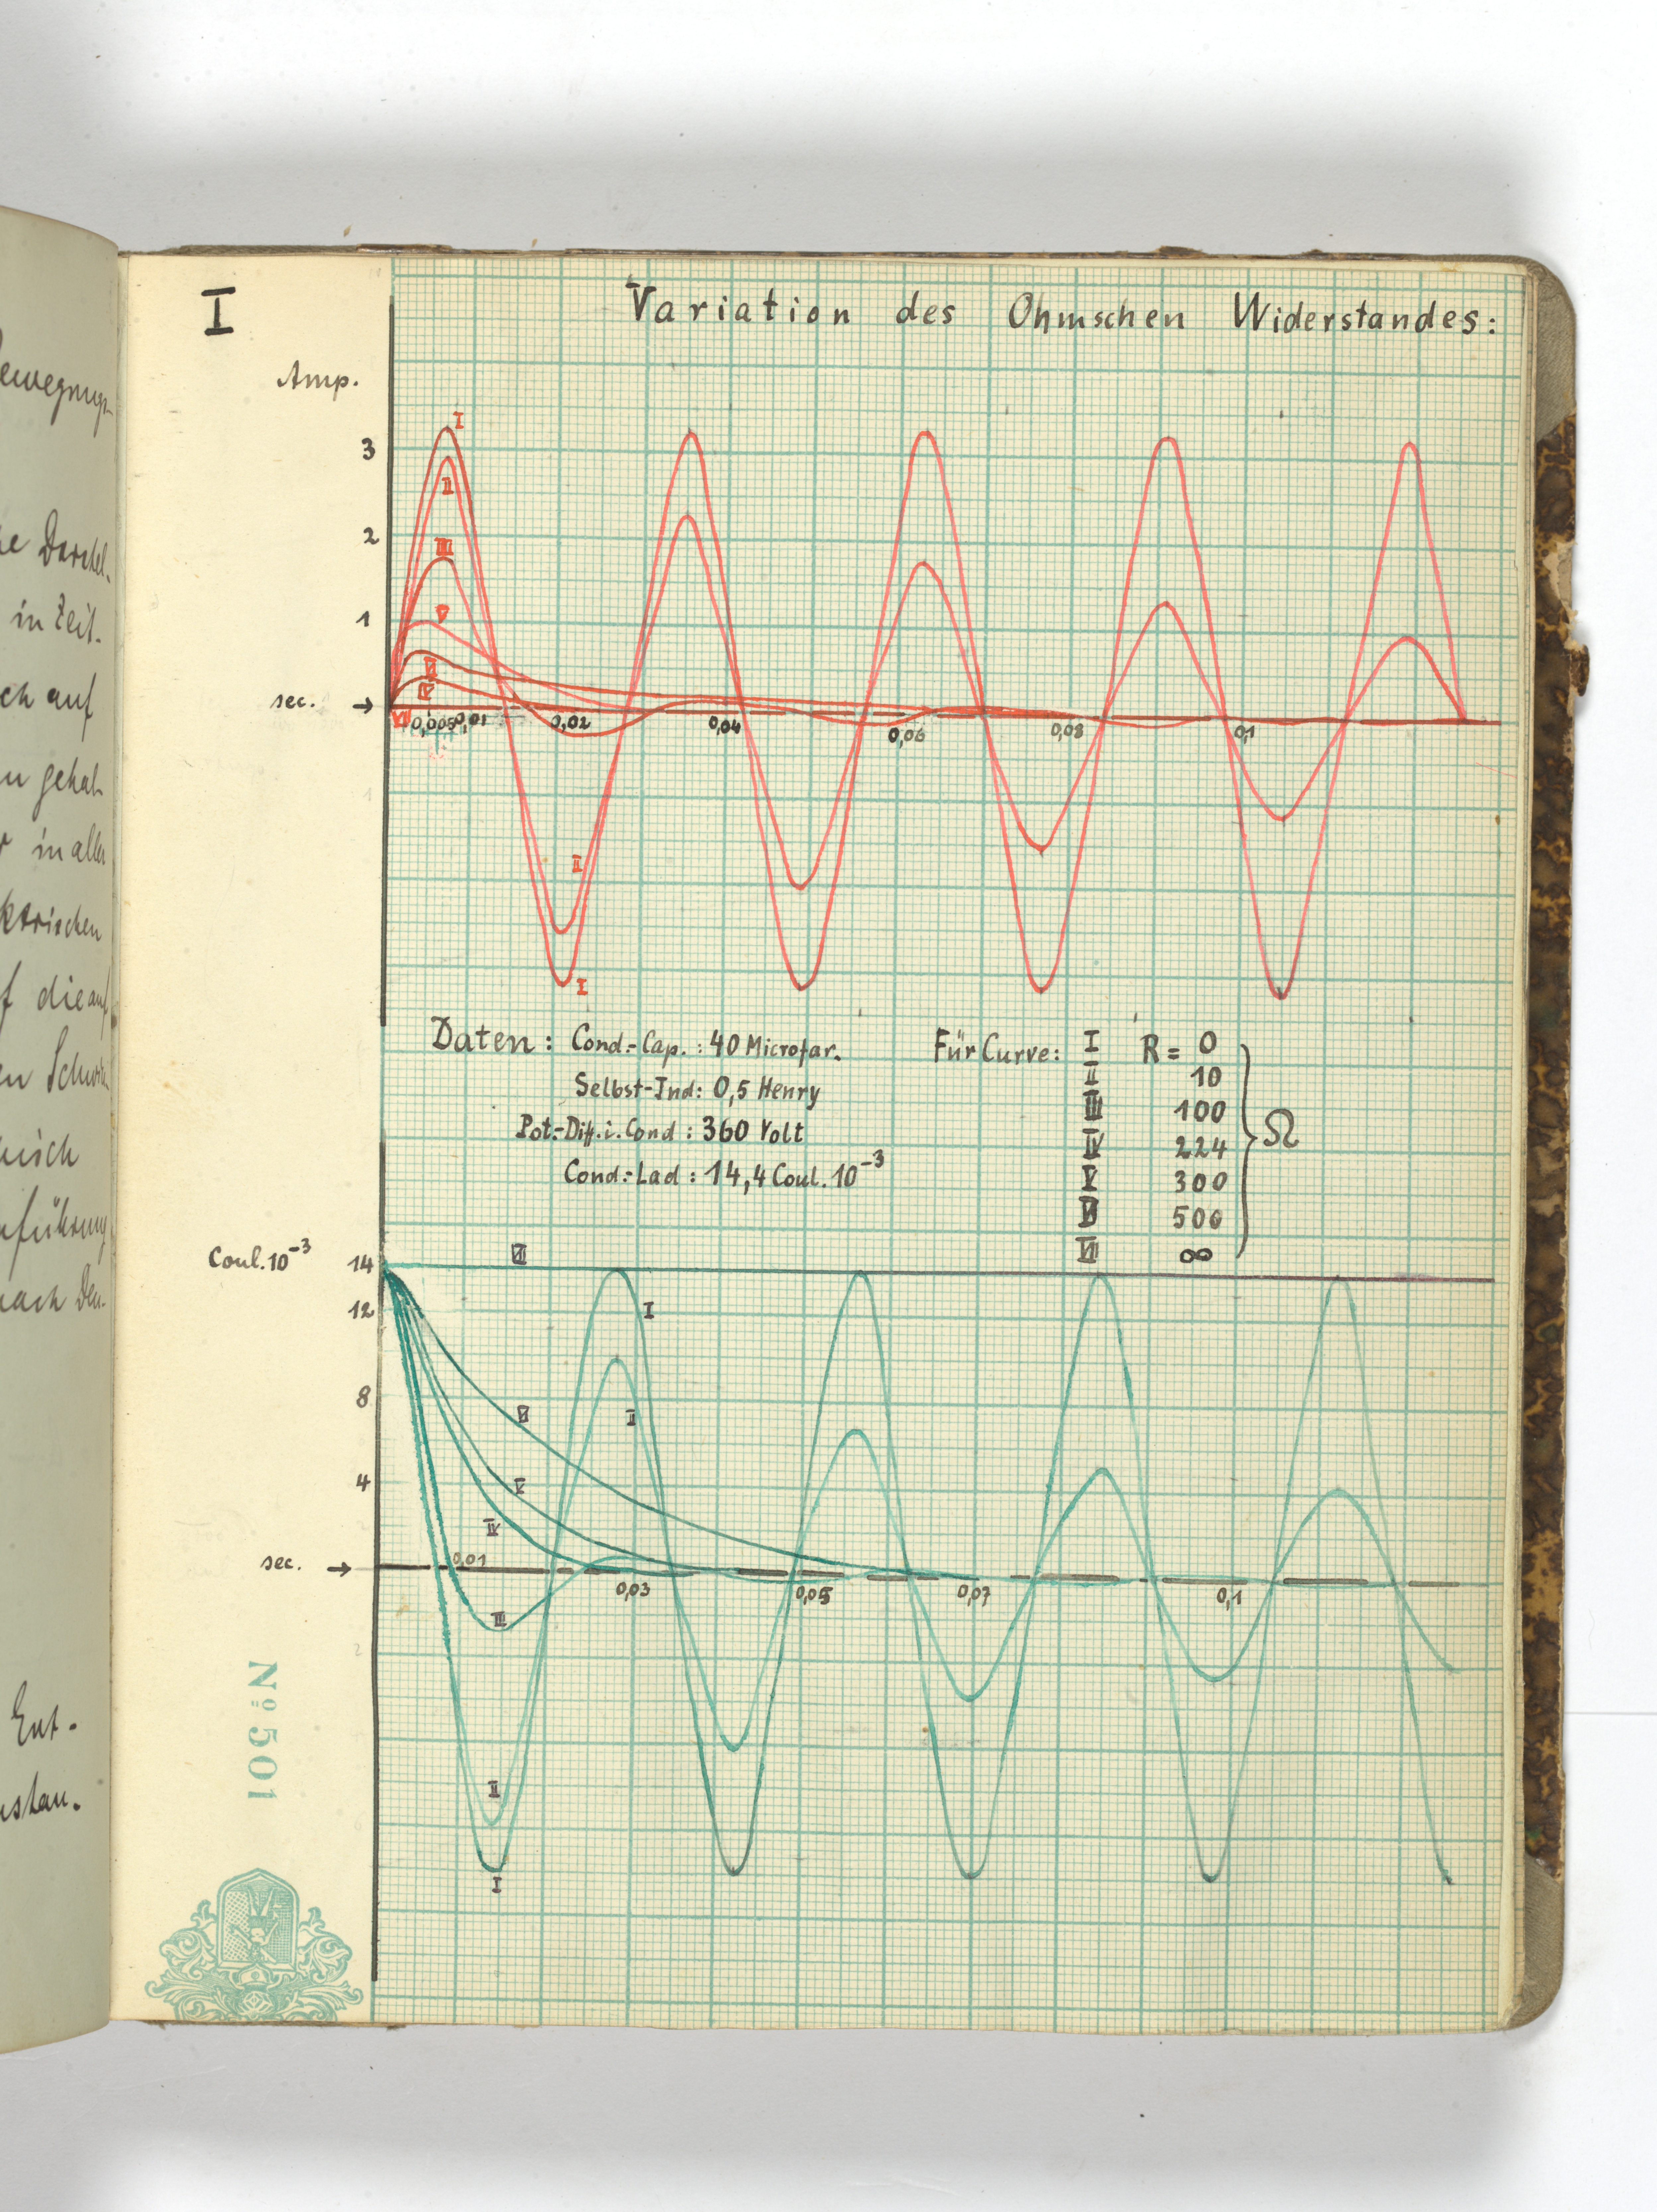 I
Variation des Ohmschen Widerstandes:
Amp.
3
2
1
sec. →
I
II
III
V
VI
IV
VII
0,005 0,01 0,02 0,04 0,06 0,08 0,1
1
II
I
Daten: Cond.-Cap.: 40 Microfar.
Selbst-Ind: 0,5 Henry
Pot.-Diff.i.Cond: 360 Volt
Cond.-Lad: 14,4 Coul. 10⁻³
Für Curve: I R = 0
II 10
III 100
IV 224
V 300
VI 500
VII ∞
} Ω
Coul. 10⁻³
14
12
8
4
sec. →
VII
I
VI
II
V
IV
III
0,01 0,03 0,05 0,07 0,1
2
II
I
Nº 501
in Zeit-
ch auf
in aller
ktrischen
Ent-